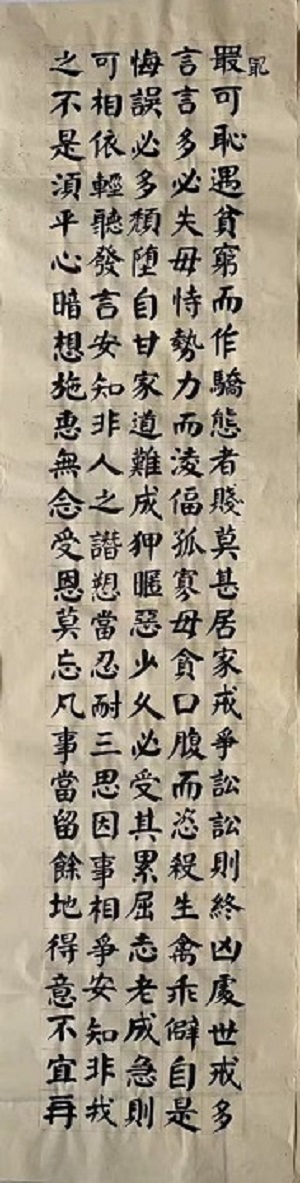 最可恥遇貧窮而作驕態者賤莫甚居家戒爭訟訟則終凶處世戒多
言言多必失毋恃勢力而淩偪孤寡毋貪口腹而恣殺生禽乖僻自是
悔誤必多頹墮自甘家道難成狎暱惡少久必受其累屈志老成急則
可相依輕聽發言安知非人之譖愬當忍耐三思因事相爭安知非我
之不是湏平心暗想施惠無念受恩莫忘凡事當留餘地得意不宜再